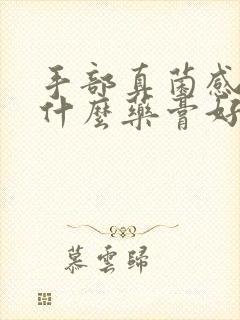 手部真菌感
什麼藥膏好
慕雲歸